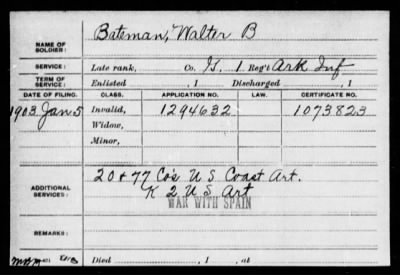 Bateman, Walter B
NAME OF SOLDIER:
SERVICE: Late rank, Co. G, 1 Reg't Ark Inf
TERM OF SERVICE: Enlisted , 1 Discharged , 1
DATE OF FILING. CLASS. APPLICATION NO. LAW. CERTIFICATE NO.
1903 Jan 5 Invalid, 1294632 1073823
Widow,
Minor,
ADDITIONAL SERVICES: 20 & 77 Co's U S Coast Art.
K 2 U S Art
WAR WITH SPAIN
REMARKS:
Died , 1 , at